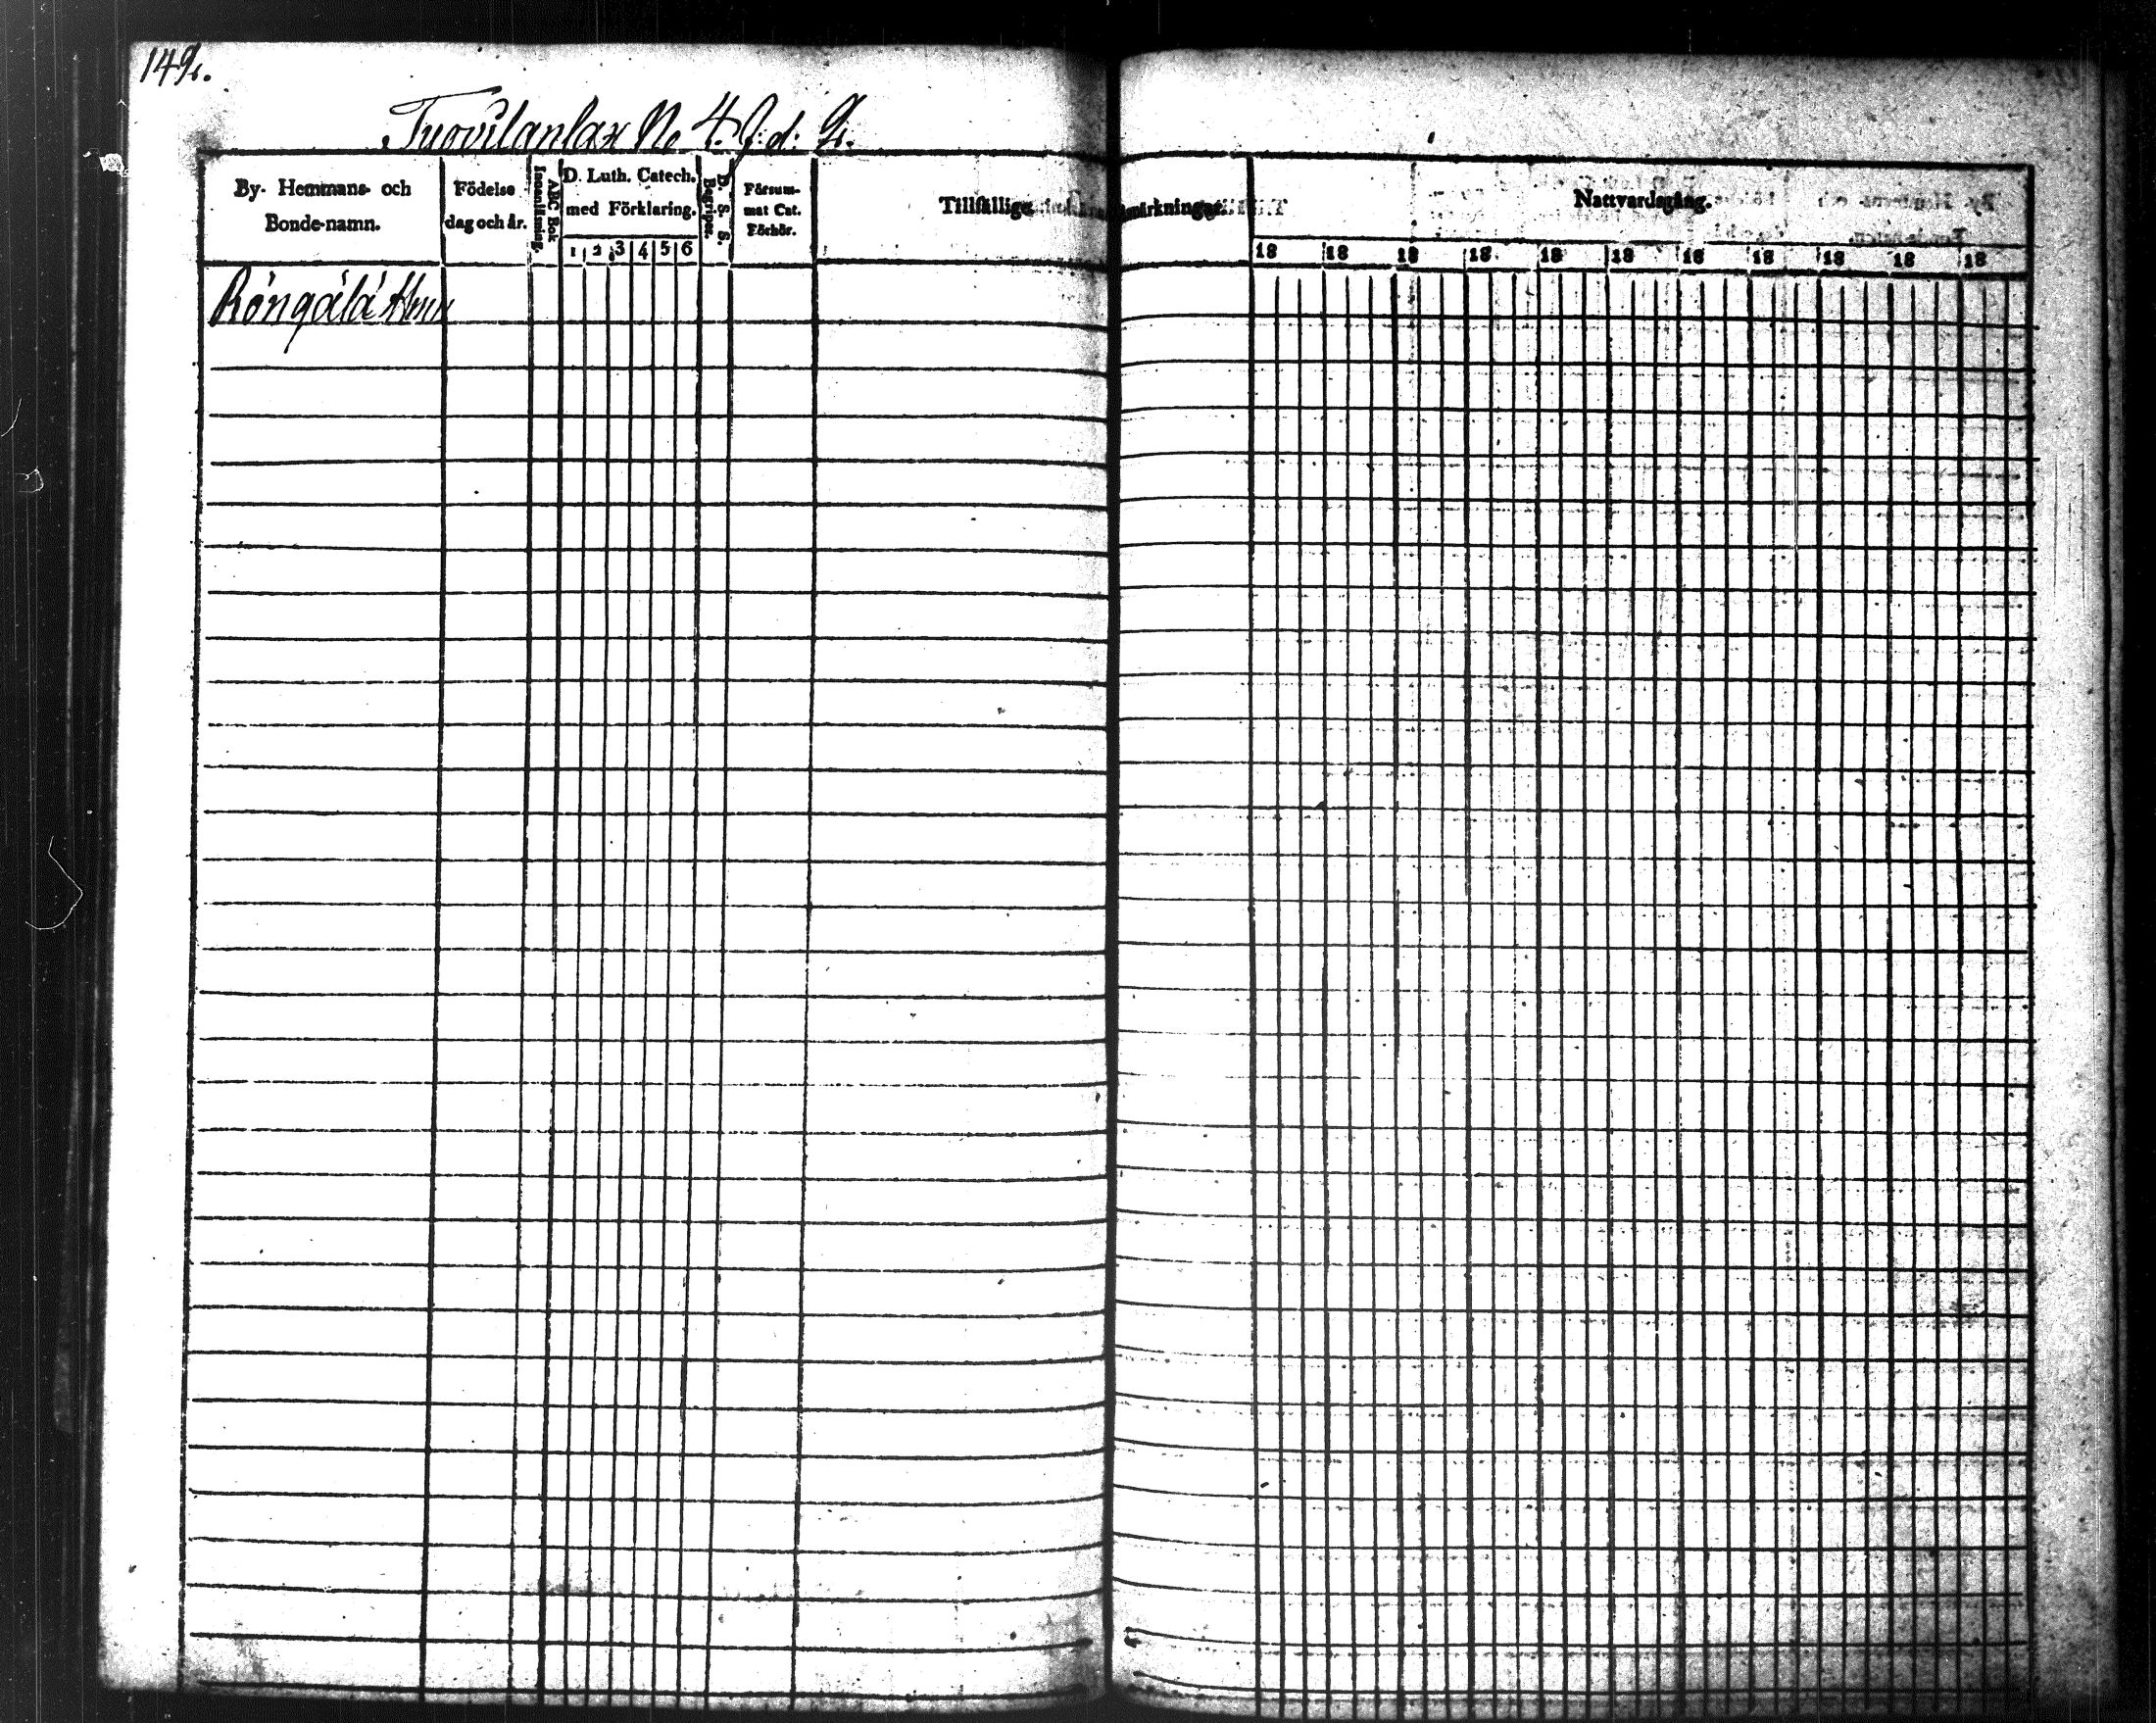 149.
Tuovilanlax No 4. J: d: 2.
By- Hemmans- och
Bonde-namn.
Födelse
dag och år.
ABC Bok
Innanläsning.
D. Luth. Catech.
med Förklaring.
1 2 3 4 5 6
D. S. S. S.
Begripes.
Försum-
mat Cat.
Förhör.
Tillfällige
Anmärkningar.
Nattvardsgång.
18 18 18 18 18 18 18 18 18 18 18
Röngälä Hmn